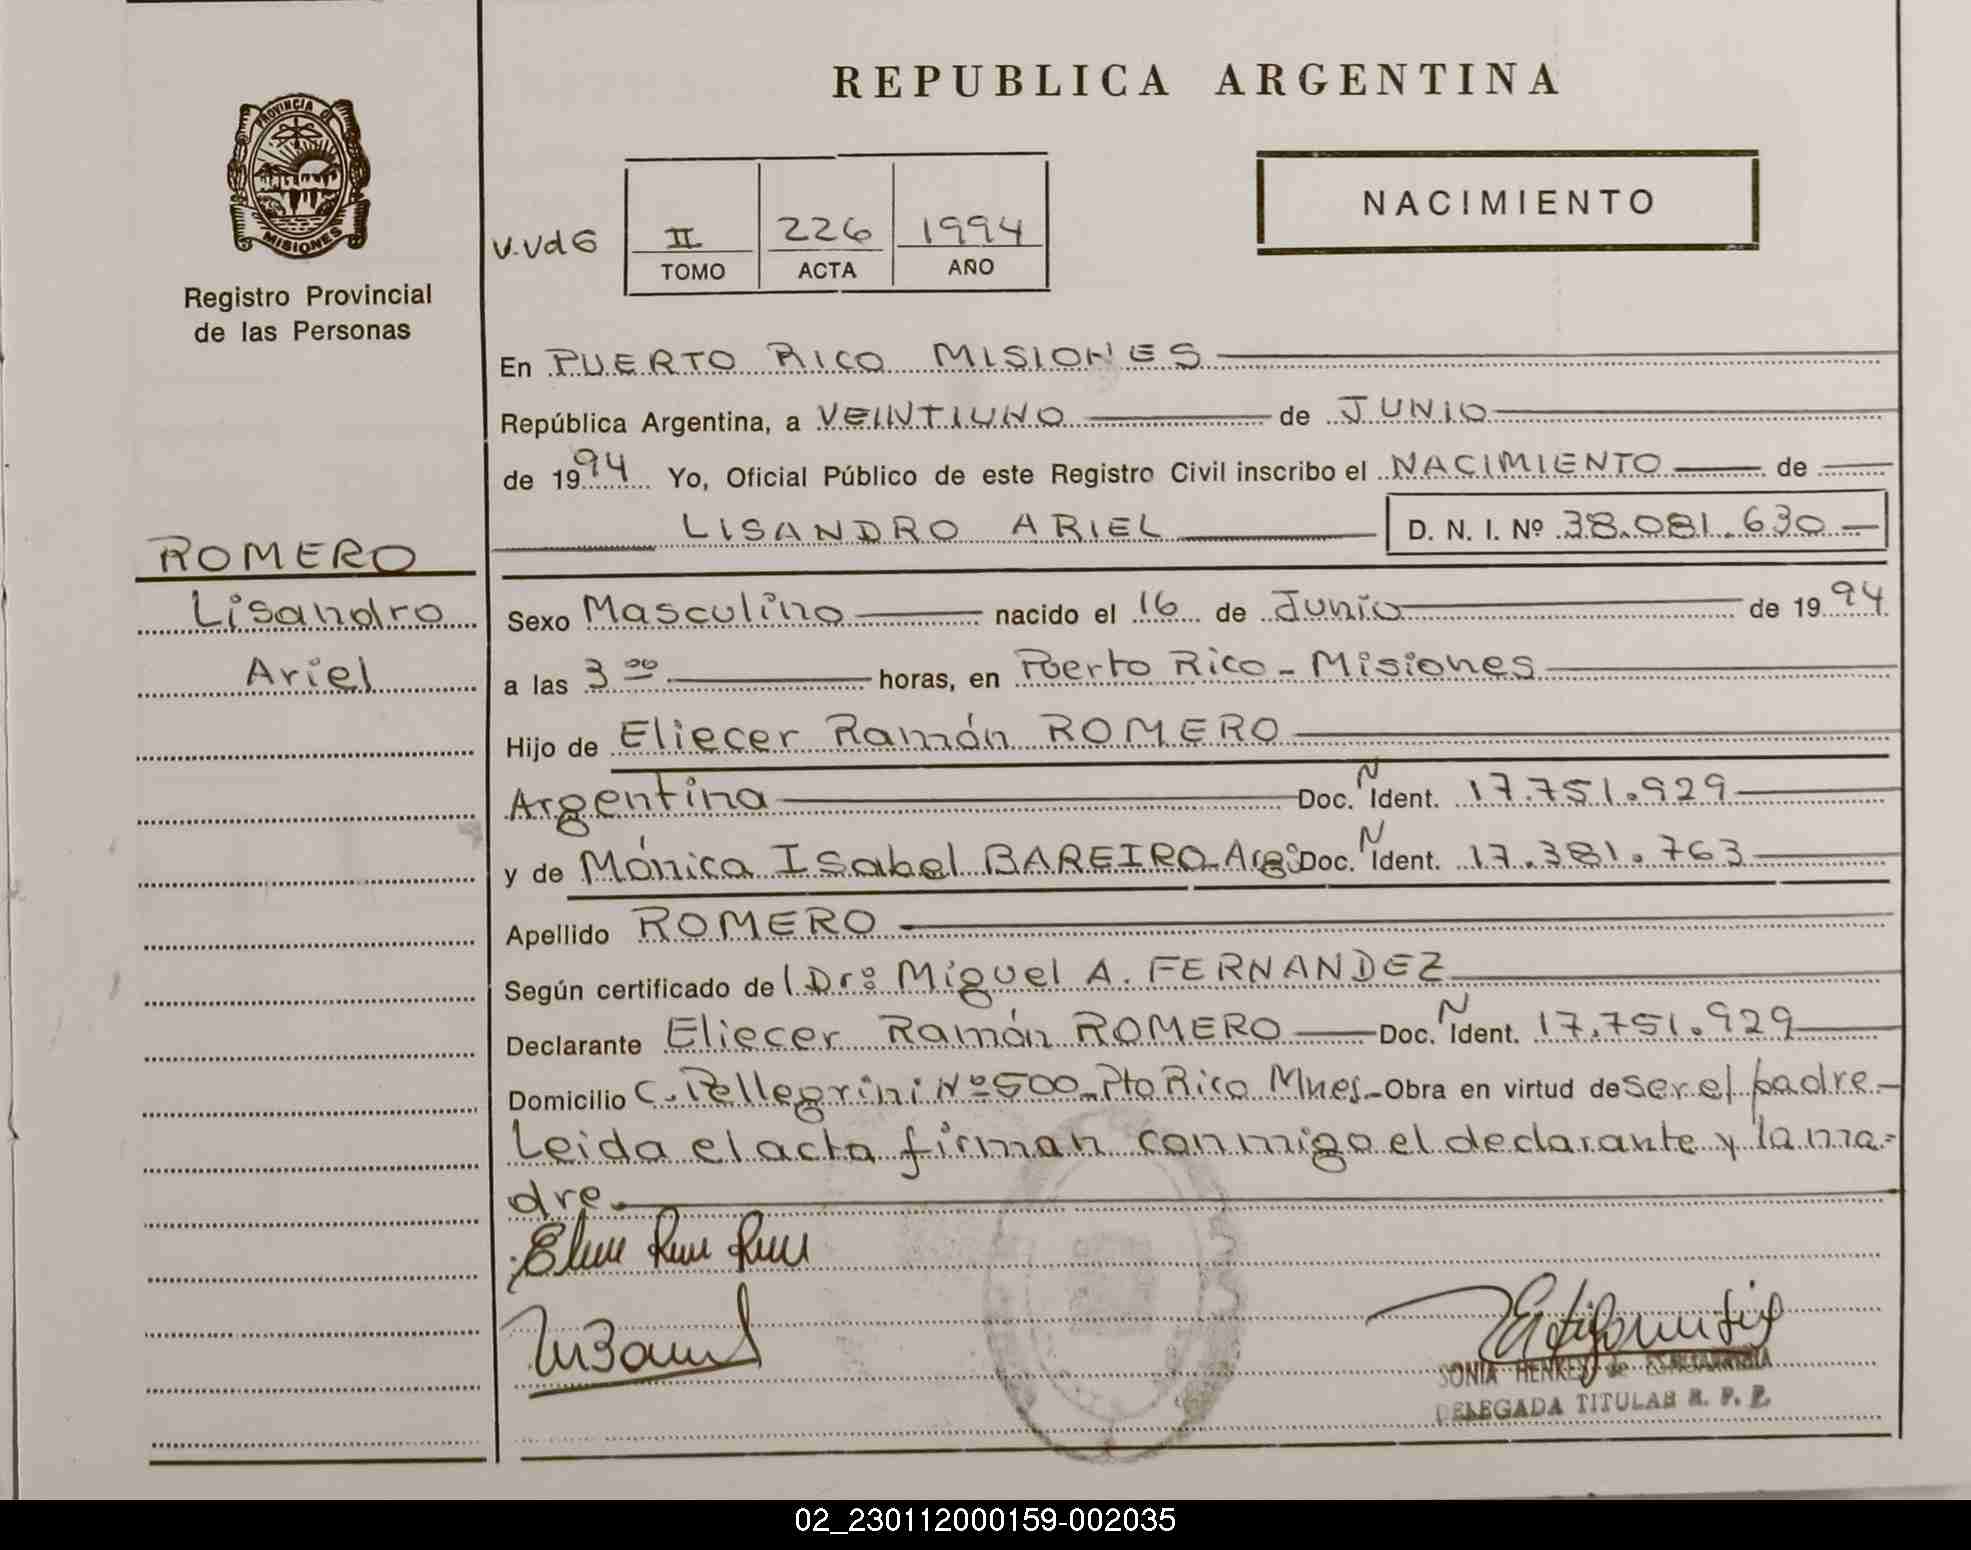 REPUBLICA ARGENTINA
PROVINCIA DE
MISIONES
Registro Provincial
de las Personas
NACIMIENTO
V.VdG
II 226 1994
TOMO ACTA AÑO
En PUERTO RICO MISIONES
República Argentina, a VEINTIUNO de JUNIO
de 1994 Yo, Oficial Público de este Registro Civil inscribo el NACIMIENTO de
LISANDRO ARIEL D. N. I. Nº 38.081.630.-
ROMERO
Lisandro
Ariel
Sexo Masculino nacido el 16 de Junio de 1994
a las 3 00 horas, en Puerto Rico - Misiones
Hijo de Eliecer Ramón ROMERO
Argentina Doc. N Ident. 17.751.929
y de Mónica Isabel BAREIRO - Arg: Doc. N Ident. 17.381.763
Apellido ROMERO
Según certificado del Dr: Miguel A. FERNANDEZ
Declarante Eliecer Ramón ROMERO Doc. N Ident. 17.751.929
Domicilio C. Pellegrini Nº 500 - Pto Rico Mnes. - Obra en virtud de ser el padre -
Leida el acta firman conmigo el declarante y la ma=
dre.
SONIA HENKES de
DELEGADA TITULAR R. P. P.
02_230112000159-002035